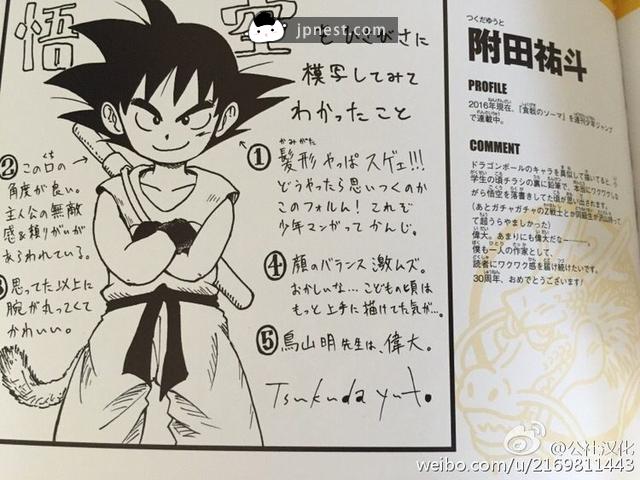 jpnest.com
悟空
とひさびさに
模写してみて
わかったこと
①髪形 やっぱスゲェ!!!
かみがた
どうやったら思いつくのか
このフォルム! これぞ
少年マンガってかんじ。
②この口の
角度が良い。
主人公の無敵
感&頼りがいが
あらわれている。
③思ってた以上に
腕が丸っこくて
かわいい。
④顔のバランス激ムズ。
おかしいな…こどもの頃は
もっと上手に描けてた気が…。
⑤鳥山明先生は、偉大。
Tsukuda yuto.
つくだゆうと
附田祐斗
PROFILE
2016年現在、『食戟のソーマ』を週刊少年ジャンプ
で連載中。
COMMENT
ドラゴンボールのキャラを真似して描いてると、
学生の頃チラシの裏に鉛筆で、本当にワクワクしな
がら悟空を落書きしてた頃が思い出されます。
(あとガチャガチャのZ戦士とか同級生が沢山持って
て超うらやましかった)
偉大。あまりにも偉大だな――。
僕も一人の作家として、
読者にワクワク感を届け続けたいです。
30周年、おめでとうございます!
@公社汉化
weibo.com/u/2169811443